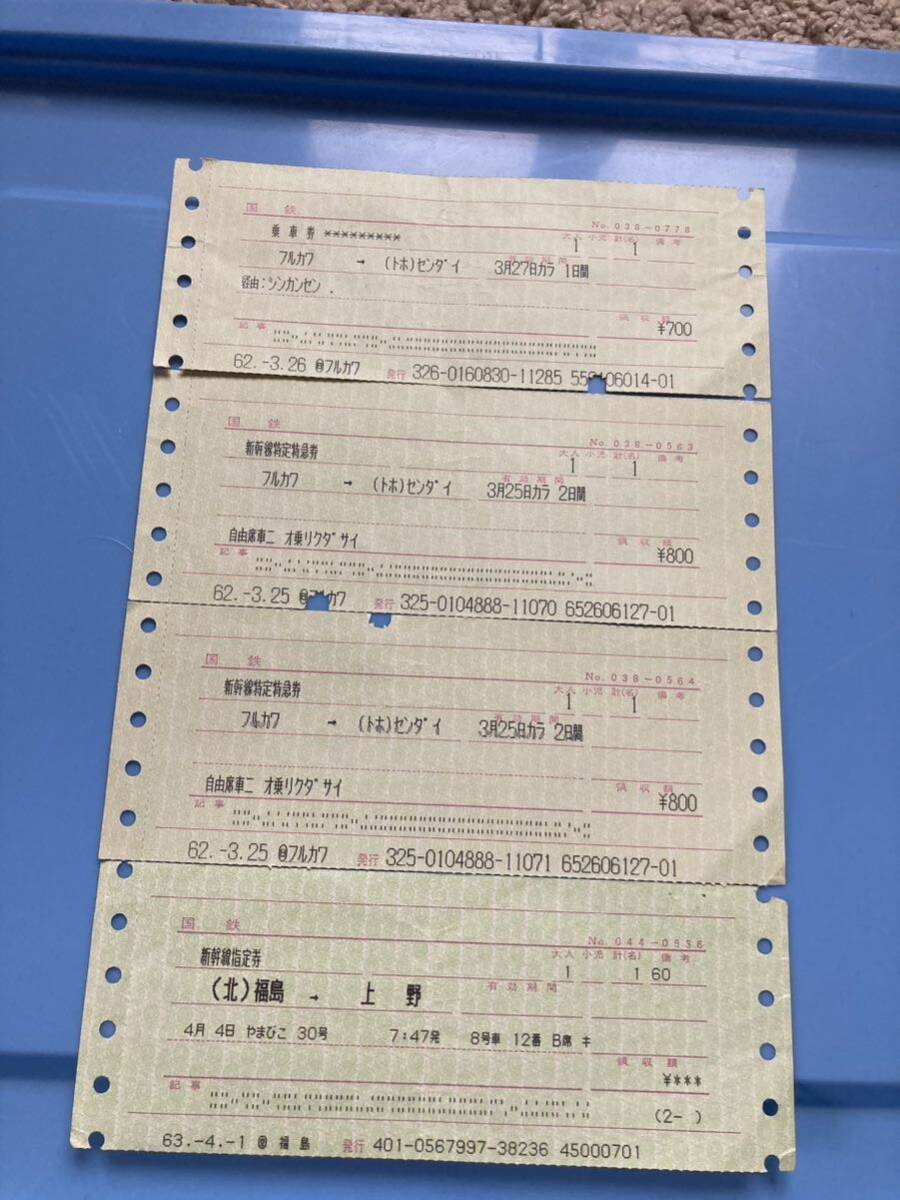 国鉄
No. 038-0778
乗車券 *********
大人 小児 計(名) 備考
1 1
フルカワ → (トホ)センダイ 3月27日カラ 1日間
有効期間
経由:シンカンセン .
領収額
¥700
記事
62.-3.26 フルカワ 発行 326-0160830-11285 06014-01
国鉄
No. 038-0563
新幹線特定特急券
大人 小児 計(名) 備考
1 1
有効期間
フルカワ → (トホ)センダイ 3月25日カラ 2日間
自由席車ニ オ乗リクダサイ
領収額
¥800
記事
62.-3.25 フルカワ 発行 325-0104888-11070 652606127-01
国鉄
No. 038-0564
新幹線特定特急券
大人 小児 計(名) 備考
1 1
有効期間
フルカワ → (トホ)センダイ 3月25日カラ 2日間
自由席車ニ オ乗リクダサイ
領収額
¥800
記事
62.-3.25 フルカワ 発行 325-0104888-11071 652606127-01
国鉄
No. 044-0536
新幹線指定券
大人 小児 計(名) 備考
1 1 60
有効期間
(北)福島 → 上野
4月 4日 やまびこ 30号 7:47発 8号車 12番 B席 キ
領収額
¥***
記事
(2- )
63.-4.-1 福島 発行 401-0567997-38236 45000701